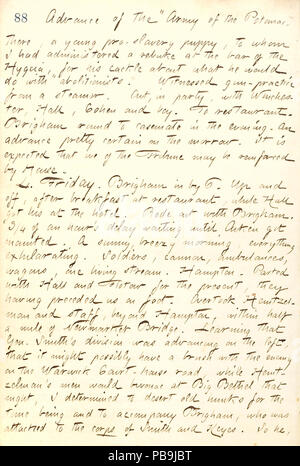 88 Advance of the "Army of the Potomac."
there, a young pro-slavery puppy, to whom
I had administered a rebuke at the bar of the
Hygeia, for his cackle about what he would
do with "abolitionists." Witnessed gun-practice
from a steamer. Out, in party, with Winches-
ter Hall, Cohen and boy. To restaurant.
Brigham round to casemate in the evening. An
advance pretty certain on the morrow. It is
expected that we of the Tribune may be reinforced
by House.
4. Friday. Brigham in by 6. Up and
off, after breakfast at restaurant, while Hall
got his at the hotel. Rode out with Brigham.
3/4 of an hour's delay waiting until Aiken got
mounted. A sunny, breezy morning, everything
exhilarating. Soldiers, cannon, ambulances,
wagons, one living stream. Hampton. Parted
with Hall and for the present, they
having preceded us on foot. Overtook Heintzel-
man and staff, beyond Hampton, within half
a mile of Newmarket Bridge. Learning that
Gen. Smith's division was advancing on the left,
that it might possibly have a brush with the enemy
on the Warwick Court-house road, while Heint-
zelman's men would bivouac at Big Bethel that
night, I determined to desert old hunks for the
time being and to accompany Brigham, who was
attached to the corps of Smith and Keyes. So he,
alamy
PB9JBT